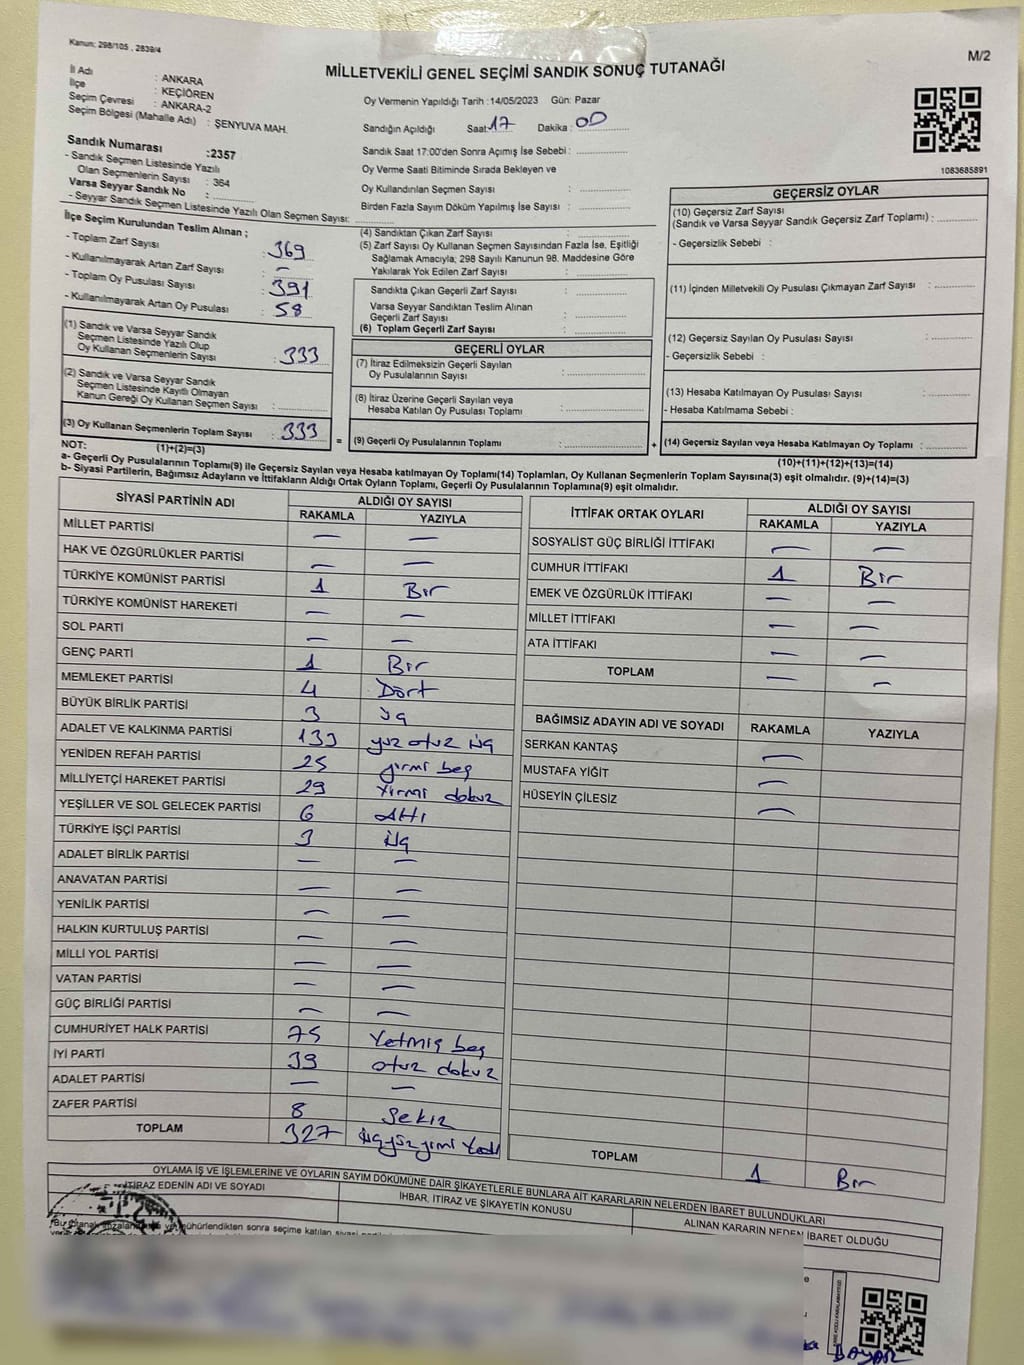 Kanun: 298/105 , 2839/4
M/2
MİLLETVEKİLİ GENEL SEÇİMİ SANDIK SONUÇ TUTANAĞI
İl Adı : ANKARA
İlçe : KEÇİÖREN
Seçim Çevresi : ANKARA-2
Seçim Bölgesi (Mahalle Adı) : ŞENYUVA MAH.
Sandık Numarası :2357
- Sandık Seçmen Listesinde Yazılı
Olan Seçmenlerin Sayısı : 364
Varsa Seyyar Sandık No :
- Seyyar Sandık Seçmen Listesinde Yazılı Olan Seçmen Sayısı:
İlçe Seçim Kurulundan Teslim Alınan ;
- Toplam Zarf Sayısı : 369
- Kullanılmayarak Artan Zarf Sayısı : –
- Toplam Oy Pusulası Sayısı : 391
- Kullanılmayarak Artan Oy Pusulası : 58
(1) Sandık ve Varsa Seyyar Sandık
Seçmen Listesinde Yazılı Olup
Oy Kullanan Seçmenlerin Sayısı : 333
(2) Sandık ve Varsa Seyyar Sandık
Seçmen Listesinde Kayıtlı Olmayan
Kanun Gereği Oy Kullanan Seçmen Sayısı :
(3) Oy Kullanan Seçmenlerin Toplam Sayısı : 333
(1)+(2)=(3)
Oy Vermenin Yapıldığı Tarih :14/05/2023 Gün: Pazar
Sandığın Açıldığı Saat: 17 Dakika : 00
Sandık Saat 17:00'den Sonra Açımış İse Sebebi :
Oy Verme Saati Bitiminde Sırada Bekleyen ve
Oy Kullandırılan Seçmen Sayısı :
Birden Fazla Sayım Döküm Yapılmış İse Sayısı :
(4) Sandıktan Çıkan Zarf Sayısı :
(5) Zarf Sayısı Oy Kullanan Seçmen Sayısından Fazla İse, Eşitliği
Sağlamak Amacıyla; 298 Sayılı Kanunun 98. Maddesine Göre
Yakılarak Yok Edilen Zarf Sayısı :
Sandıkta Çıkan Geçerli Zarf Sayısı :
Varsa Seyyar Sandıktan Teslim Alınan
Geçerli Zarf Sayısı :
(6) Toplam Geçerli Zarf Sayısı :
GEÇERLİ OYLAR
(7) İtiraz Edilmeksizin Geçerli Sayılan
Oy Pusulalarının Sayısı :
(8) İtiraz Üzerine Geçerli Sayılan veya
Hesaba Katılan Oy Pusulası Toplamı :
= (9) Geçerli Oy Pusulalarının Toplamı : +
1083685891
GEÇERSİZ OYLAR
(10) Geçersiz Zarf Sayısı
(Sandık ve Varsa Seyyar Sandık Geçersiz Zarf Toplamı) :
- Geçersizlik Sebebi :
(11) İçinden Milletvekili Oy Pusulası Çıkmayan Zarf Sayısı :
(12) Geçersiz Sayılan Oy Pusulası Sayısı :
- Geçersizlik Sebebi :
(13) Hesaba Katılmayan Oy Pusulası Sayısı :
- Hesaba Katılmama Sebebi :
(14) Geçersiz Sayılan veya Hesaba Katılmayan Oy Toplamı :
(10)+(11)+(12)+(13)=(14)
NOT:
a- Geçerli Oy Pusulalarının Toplamı(9) ile Geçersiz Sayılan veya Hesaba katılmayan Oy Toplamı(14) Toplamları, Oy Kullanan Seçmenlerin Toplam Sayısına(3) eşit olmalıdır. (9)+(14)=(3)
b- Siyasi Partilerin, Bağımsız Adayların ve İttifakların Aldığı Ortak Oyların Toplamı, Geçerli Oy Pusulalarının Toplamına(9) eşit olmalıdır.
SİYASİ PARTİNİN ADI ALDIĞI OY SAYISI
RAKAMLA YAZIYLA
MİLLET PARTİSİ – –
HAK VE ÖZGÜRLÜKLER PARTİSİ – –
TÜRKİYE KOMÜNİST PARTİSİ 1 Bir
TÜRKİYE KOMÜNİST HAREKETİ – –
SOL PARTİ – –
GENÇ PARTİ 1 Bir
MEMLEKET PARTİSİ 4 Dört
BÜYÜK BİRLİK PARTİSİ 3 üç
ADALET VE KALKINMA PARTİSİ 133 yüz otuz üç
YENİDEN REFAH PARTİSİ 25 yirmi beş
MİLLİYETÇİ HAREKET PARTİSİ 29 Yirmi dokuz
YEŞİLLER VE SOL GELECEK PARTİSİ 6 Altı
TÜRKİYE İŞÇİ PARTİSİ 3 üç
ADALET BİRLİK PARTİSİ – –
ANAVATAN PARTİSİ – –
YENİLİK PARTİSİ – –
HALKIN KURTULUŞ PARTİSİ – –
MİLLİ YOL PARTİSİ – –
VATAN PARTİSİ – –
GÜÇ BİRLİĞİ PARTİSİ – –
CUMHURİYET HALK PARTİSİ 75 Yetmiş beş
İYİ PARTİ 39 otuz dokuz
ADALET PARTİSİ – –
ZAFER PARTİSİ 8 Sekiz
TOPLAM 327 üçyüz yirmi Yedi
İTTİFAK ORTAK OYLARI ALDIĞI OY SAYISI
RAKAMLA YAZIYLA
SOSYALİST GÜÇ BİRLİĞİ İTTİFAKI – –
CUMHUR İTTİFAKI 1 Bir
EMEK VE ÖZGÜRLÜK İTTİFAKI – –
MİLLET İTTİFAKI – –
ATA İTTİFAKI – –
TOPLAM – –
BAĞIMSIZ ADAYIN ADI VE SOYADI RAKAMLA YAZIYLA
SERKAN KANTAŞ –
MUSTAFA YİĞİT –
HÜSEYİN ÇİLESİZ –
TOPLAM 1 Bir
OYLAMA İŞ VE İŞLEMLERİNE VE OYLARIN SAYIM DÖKÜMÜNE DAİR ŞİKAYETLERLE BUNLARA AİT KARARLARIN NELERDEN İBARET BULUNDUKLARI
İTİRAZ EDENİN ADI VE SOYADI İHBAR, İTİRAZ VE ŞİKAYETİN KONUSU ALINAN KARARIN NEDEN İBARET OLDUĞU
mühürlendikten sonra seçime katılan siyasi